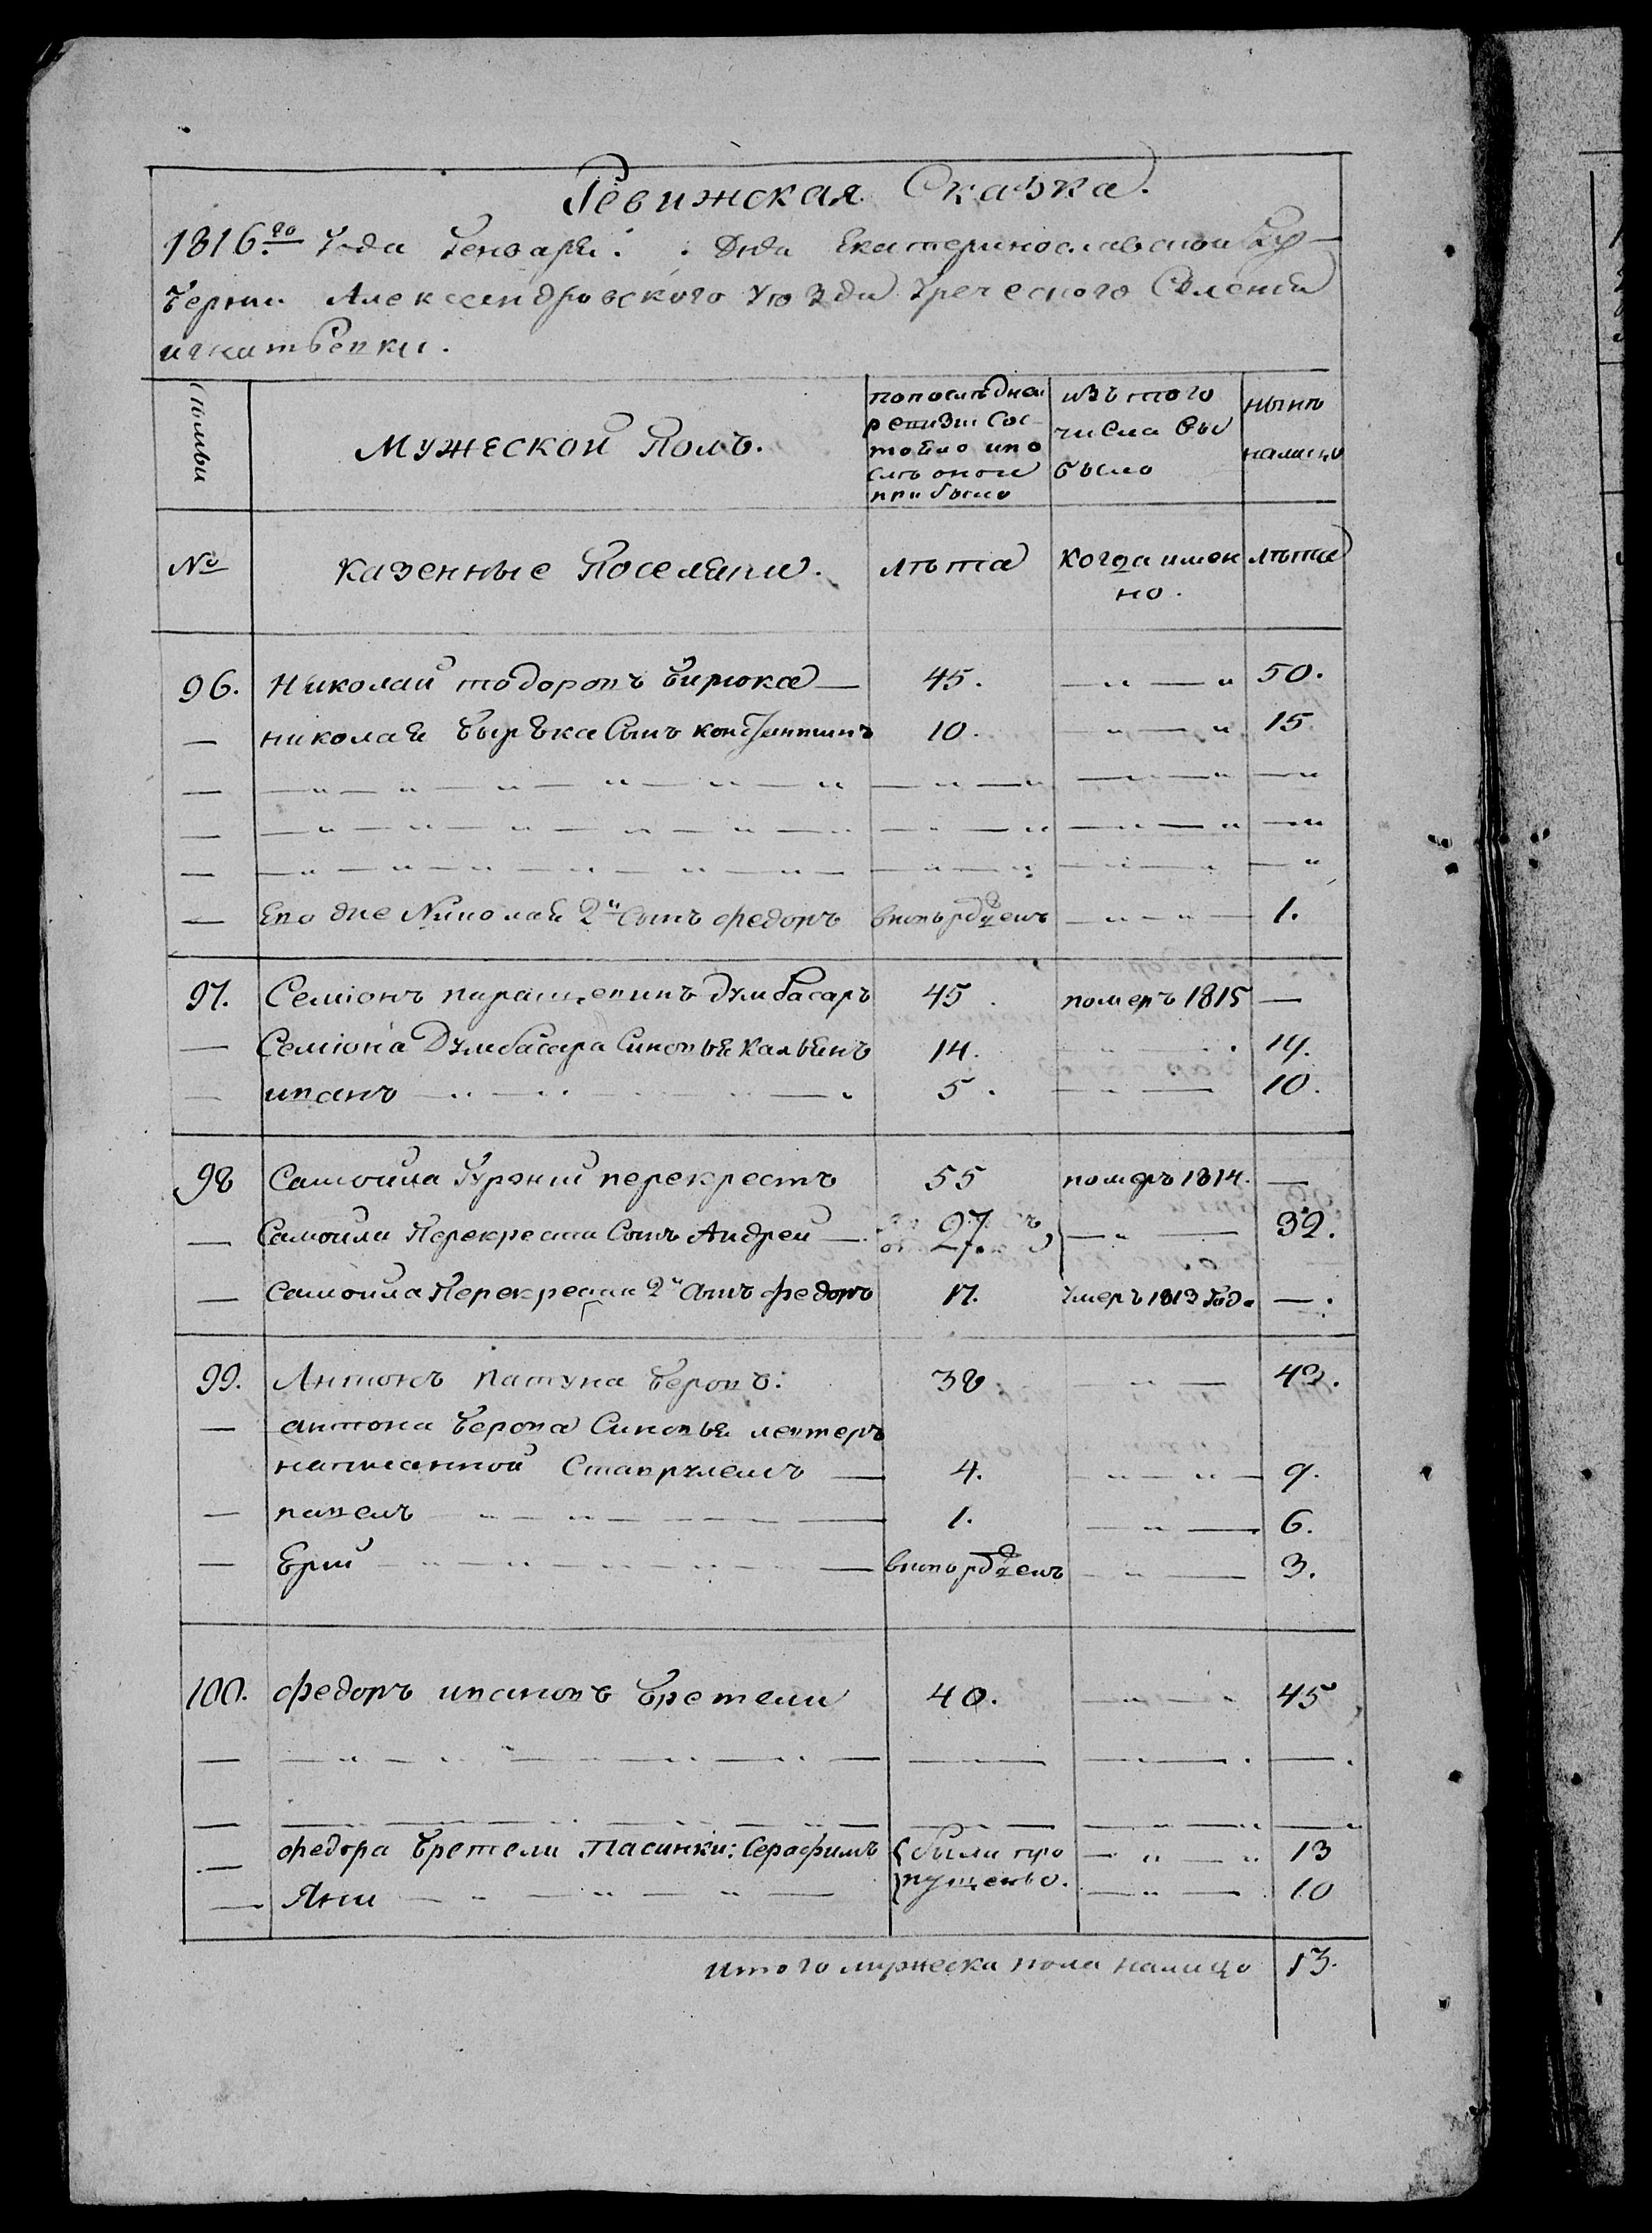 Ревижская Сказка.
1816.го Года Генваря . . Дня Екатеринославской Гу-
бернии Александровского уѣзда Греческого Селенія
игнатьевки.
Фамилии
Мужеской Полъ.
по последней ревизіи состояло и после оной прибыло
изъ того числа выбыло
нынѣ налицо
№
казенные Поселяни.
лѣта
когда имен но.
лѣта
96. Николай тодоровъ бирюка — 45. — „ — „ 50.
— николая бырѣка Сынъ константинъ 10. — „ — „ 15
— Его же Николая 2й Сынъ федоръ вновь рожденъ — „ — „ — 1.
97. Семіонъ Думбасаръ 45. померъ 1815 —
— Семіона Думбасара Синовья 14. — . 19.
— иванъ — „ — „ — 5. — „ — 10.
98 Самойла перекрестъ 55 померъ 1814. —
— Самойли Перекреста Сынъ Андрей — 27. — „ — 32.
— Самойла Перекреста 2й Сынъ федоръ 17. умеръ 1813 Год. — .
99. Антонъ 38 — „ — 43.
— антона Синовья
написанной — 4. — „ — „ — 9.
— павелъ — „ — „ — 1. — „ — 6.
— Ерий — „ — „ — вновь рожденъ — „ — 3.
100. федоръ ивановъ бретели 40. — „ — „ 45
— федора бретели Пасинки: Серафимъ { были про — „ — „ 13
— Яни — „ — „ — „ — } пущены. — „ — 10
Итого мужеска пола налицо 13.